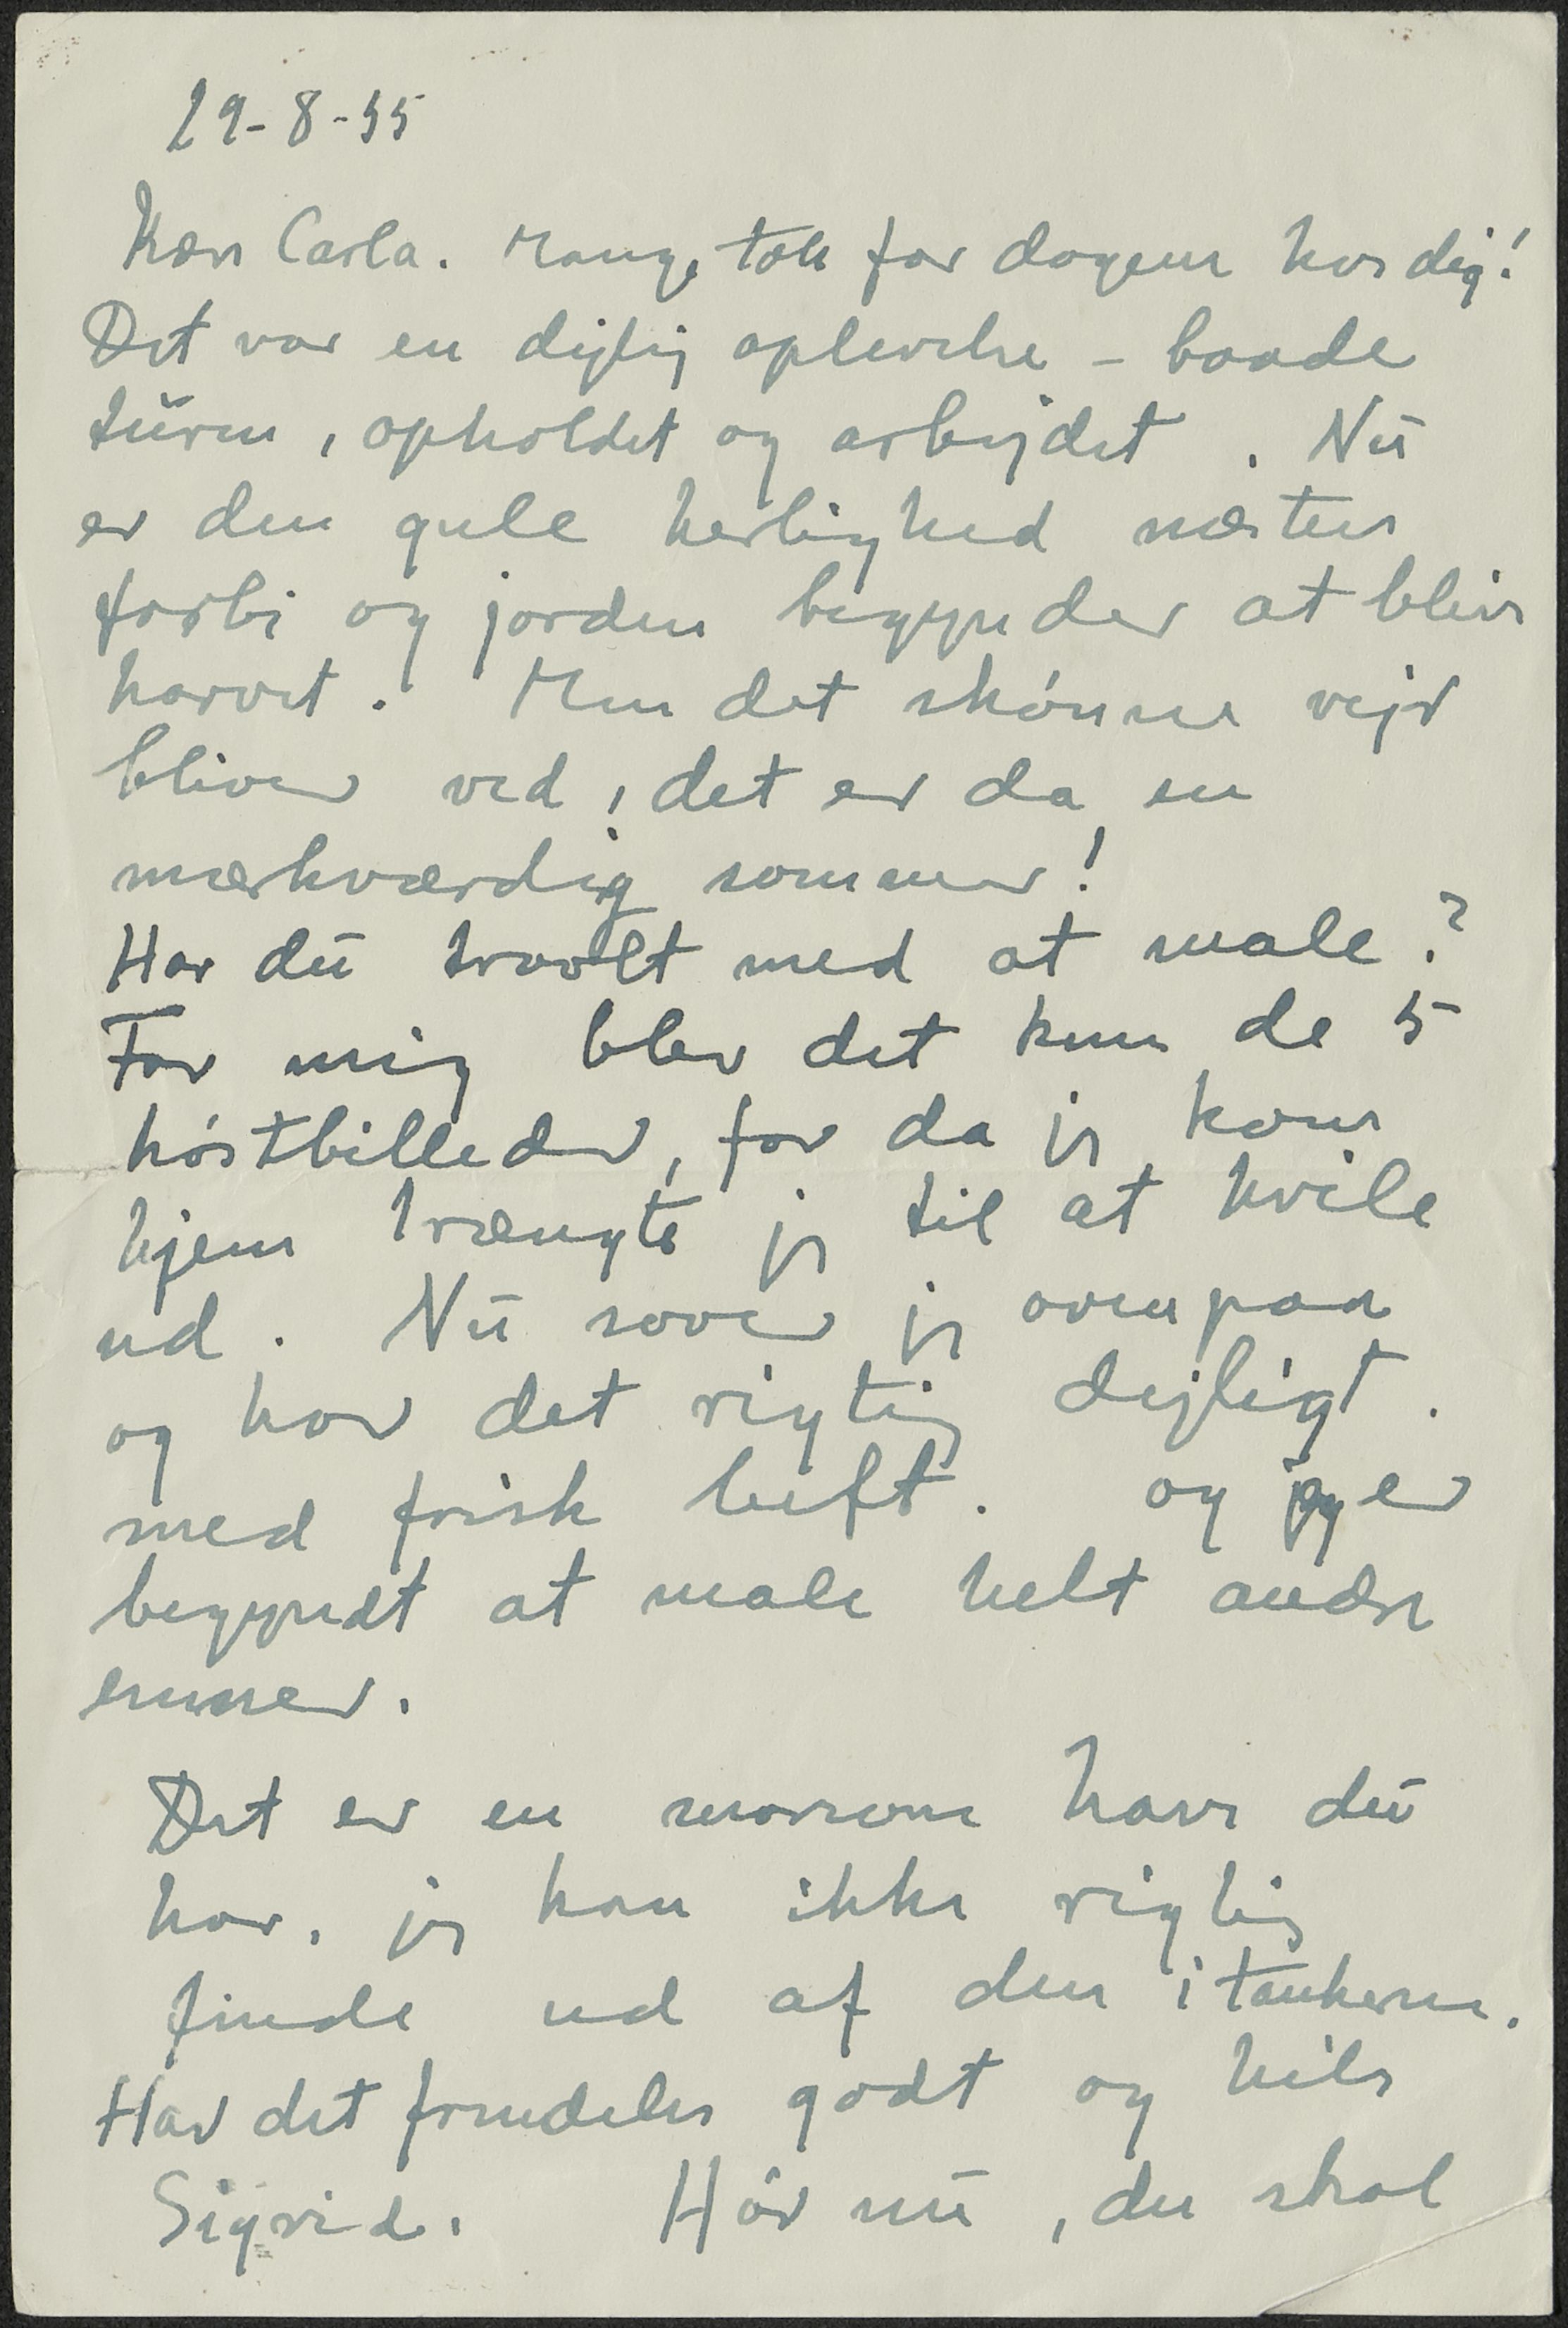 29-8-55
Kære Carla. Mange tak for dagene hos dig!
Det var en dejlig oplevelse – baade
turen, opholdet og arbejdet. Nu
er den gule herlighed næsten
forbi og jorden begynder at blive
harvet. Men det skønne vejr
bliver ved, det er da en
mærkværdig sommer!
Har du travlt med at male?
For mig blev det kun de 5
høstbilleder, for da jeg kom
hjem trængte jeg til at hvile
ud. Nu sover jeg ovenpaa
og har det rigtig dejligt.
med frisk luft. og jeg er
begyndt at male helt andre
emner.
Det er en morsom have du
har, jeg kan ikke rigtig
finde ud af den i tankerne.
Hav det fremdeles godt og hils
Sigrid. Hør nu, du skal